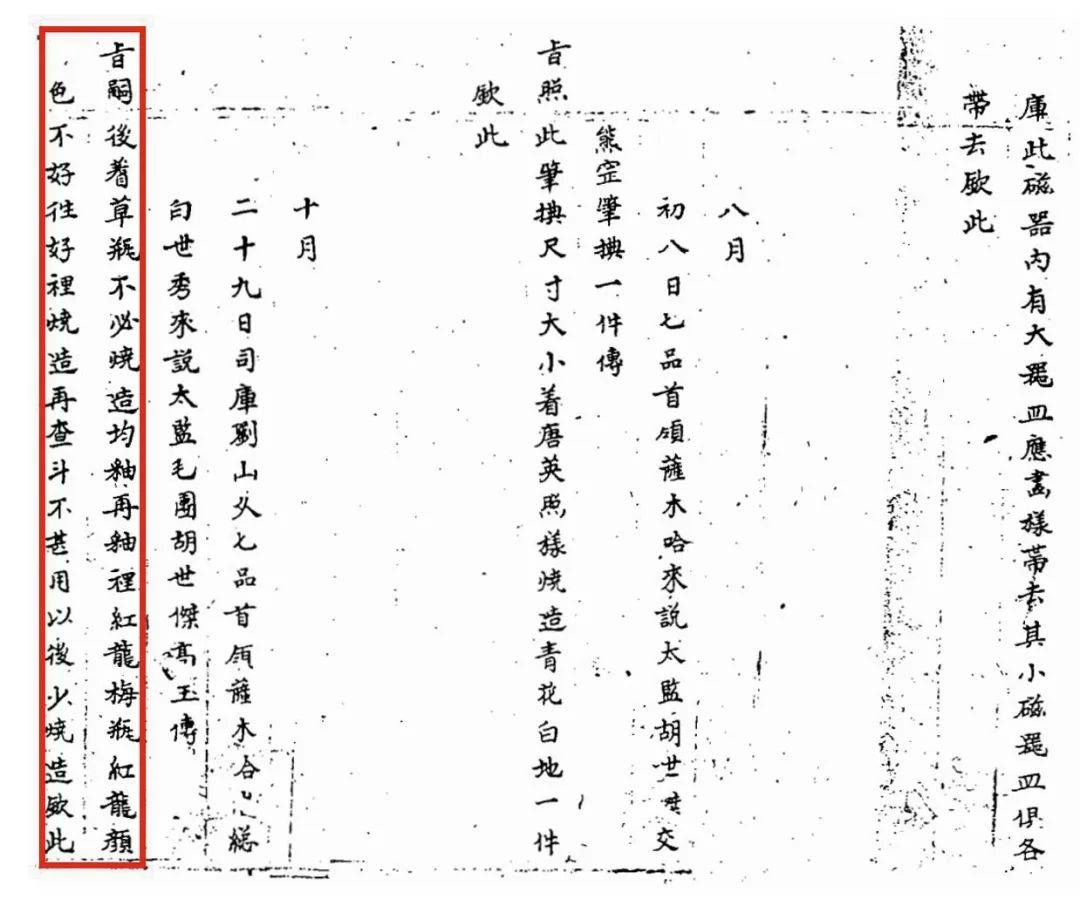 庫此磁器內有大器皿應畫樣帶去其小磁器皿俱各
帶去欽此
八月
初八日七品首領薩木哈來說太監胡世傑交
熊空肇揕一件傳
旨照此肇揕尺寸大小着唐英照樣燒造青花白地一件
欽此
十月
二十九日司庫劉山久七品首領薩木哈總
白世秀來說太監毛團胡世傑高玉傳
旨嗣後着草瓶不必燒造均釉再釉裡紅龍梅瓶紅龍顏
色不好往好裡燒造再查斗不甚用以後少燒造欽此